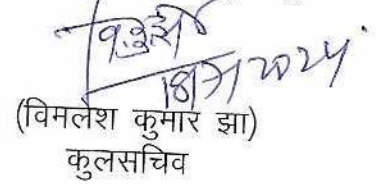 18/7/2024
(विमलेश कुमार झा)
कुलसचिव